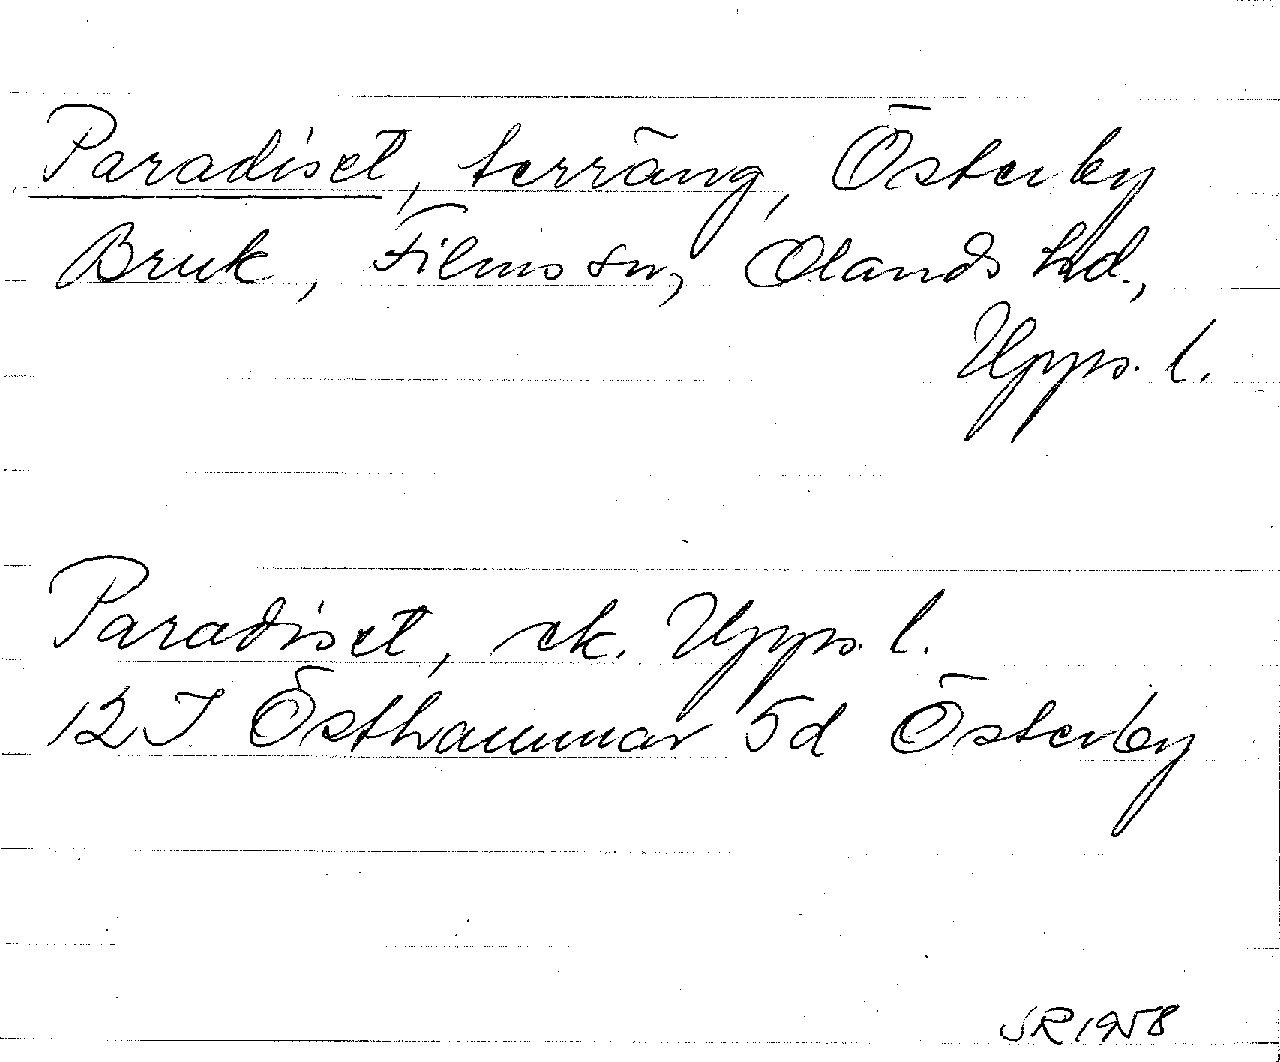 Paradiset, terräng, Österby
Bruk, Films sn, Olands hd.,
Upps. l.
Paradiset, ek. Upps. l.
12 I Östhammar 5d Österby
SR 1958